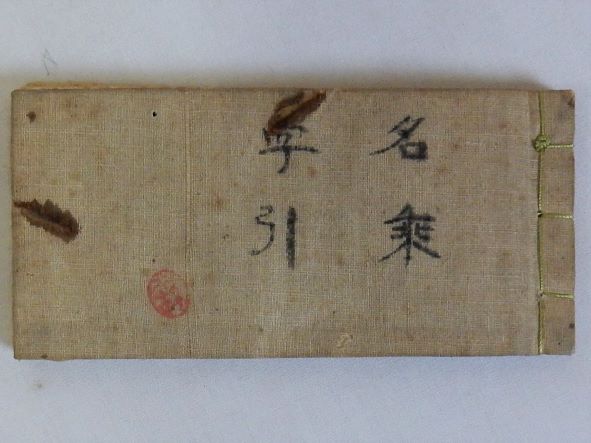 名乗
字引